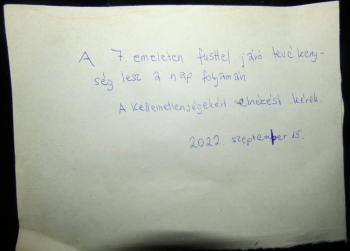 A 7. emeleten füsttel járó tevéken-
ség lesz a nap folyamán
A kellemetlenségekért elnézést kérek.
2022. szeptember 15.